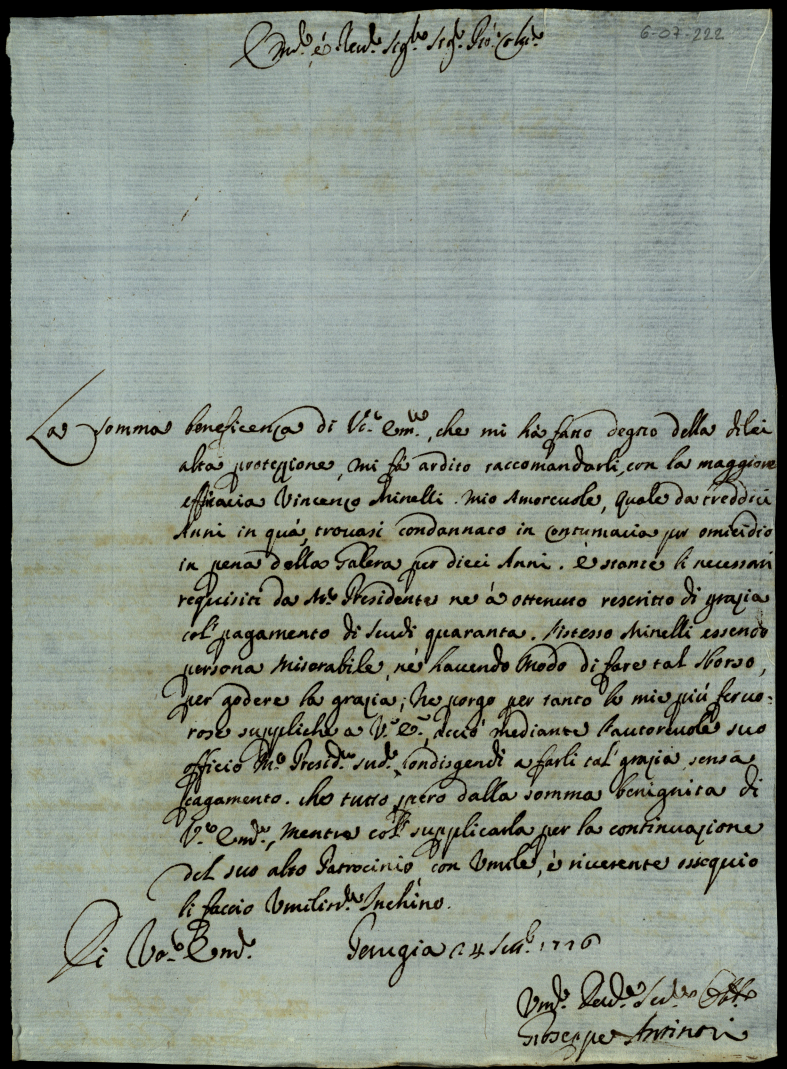 6-07-222
Em.º é Reu.º Sig.re Sig.re
La somma beneficenza di V.ª Em.ª, che mi hà fatto degno della dilei
alta protezzione, mi fà ardito raccomandarli, con la maggiore
efficacia Vincenzo Minelli mio Amoreuole, quale da treddici
Anni in quà, trouasi condannato in contumacia per omicidio
in pena della Galera per dieci Anni. è stante li necessari
requisiti da Presidente ne à ottenuto rescritto di grazia
col pagamento di Scudi quaranta. l'istesso Minelli essendo
persona Miserabile, né hauendo Modo di fare tal sborso,
per godere la grazia; Ne porgo per tanto le mie più feruo-
rose suppliche a V.ª E.ª, acciò mediante l'autoreuole suo
officio Presid.e sud.º condisgendi a farli tal grazia senza
pagamento. che tutto spero dalla somma benignità di
V.ª Em.ª, Mentre col supplicarla per la continuazione
del suo alto Patrocinio con Vmile, è riuerente ossequio
li faccio Vmiliss.º Inchino.
Di V.ª Em.ª Perugia 24 1716
Vm.º Deu.º Ser.re
Gioseppe Antinori